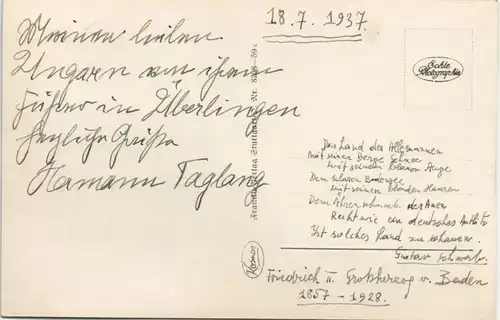 18.7.1937.
Meinen lieben
Ungarn von ihrem
Führer in Überlingen
herzliche Grüße
Hermann Taglang
Echte
Photographie
Kosmos
Das Land der Allemannen
mit seiner Berge Schnee
mit seinem blauen Auge
Dem klaren Bodensee
mit seinen blonden Haaren
Dem Ährenschmuck der Auen
Recht wie ein deutsches Antlitz
Ist solches Land zu schauen.
Gustav Schwab.
Friedrich II. Großherzog v. Baden
1857 - 1928.